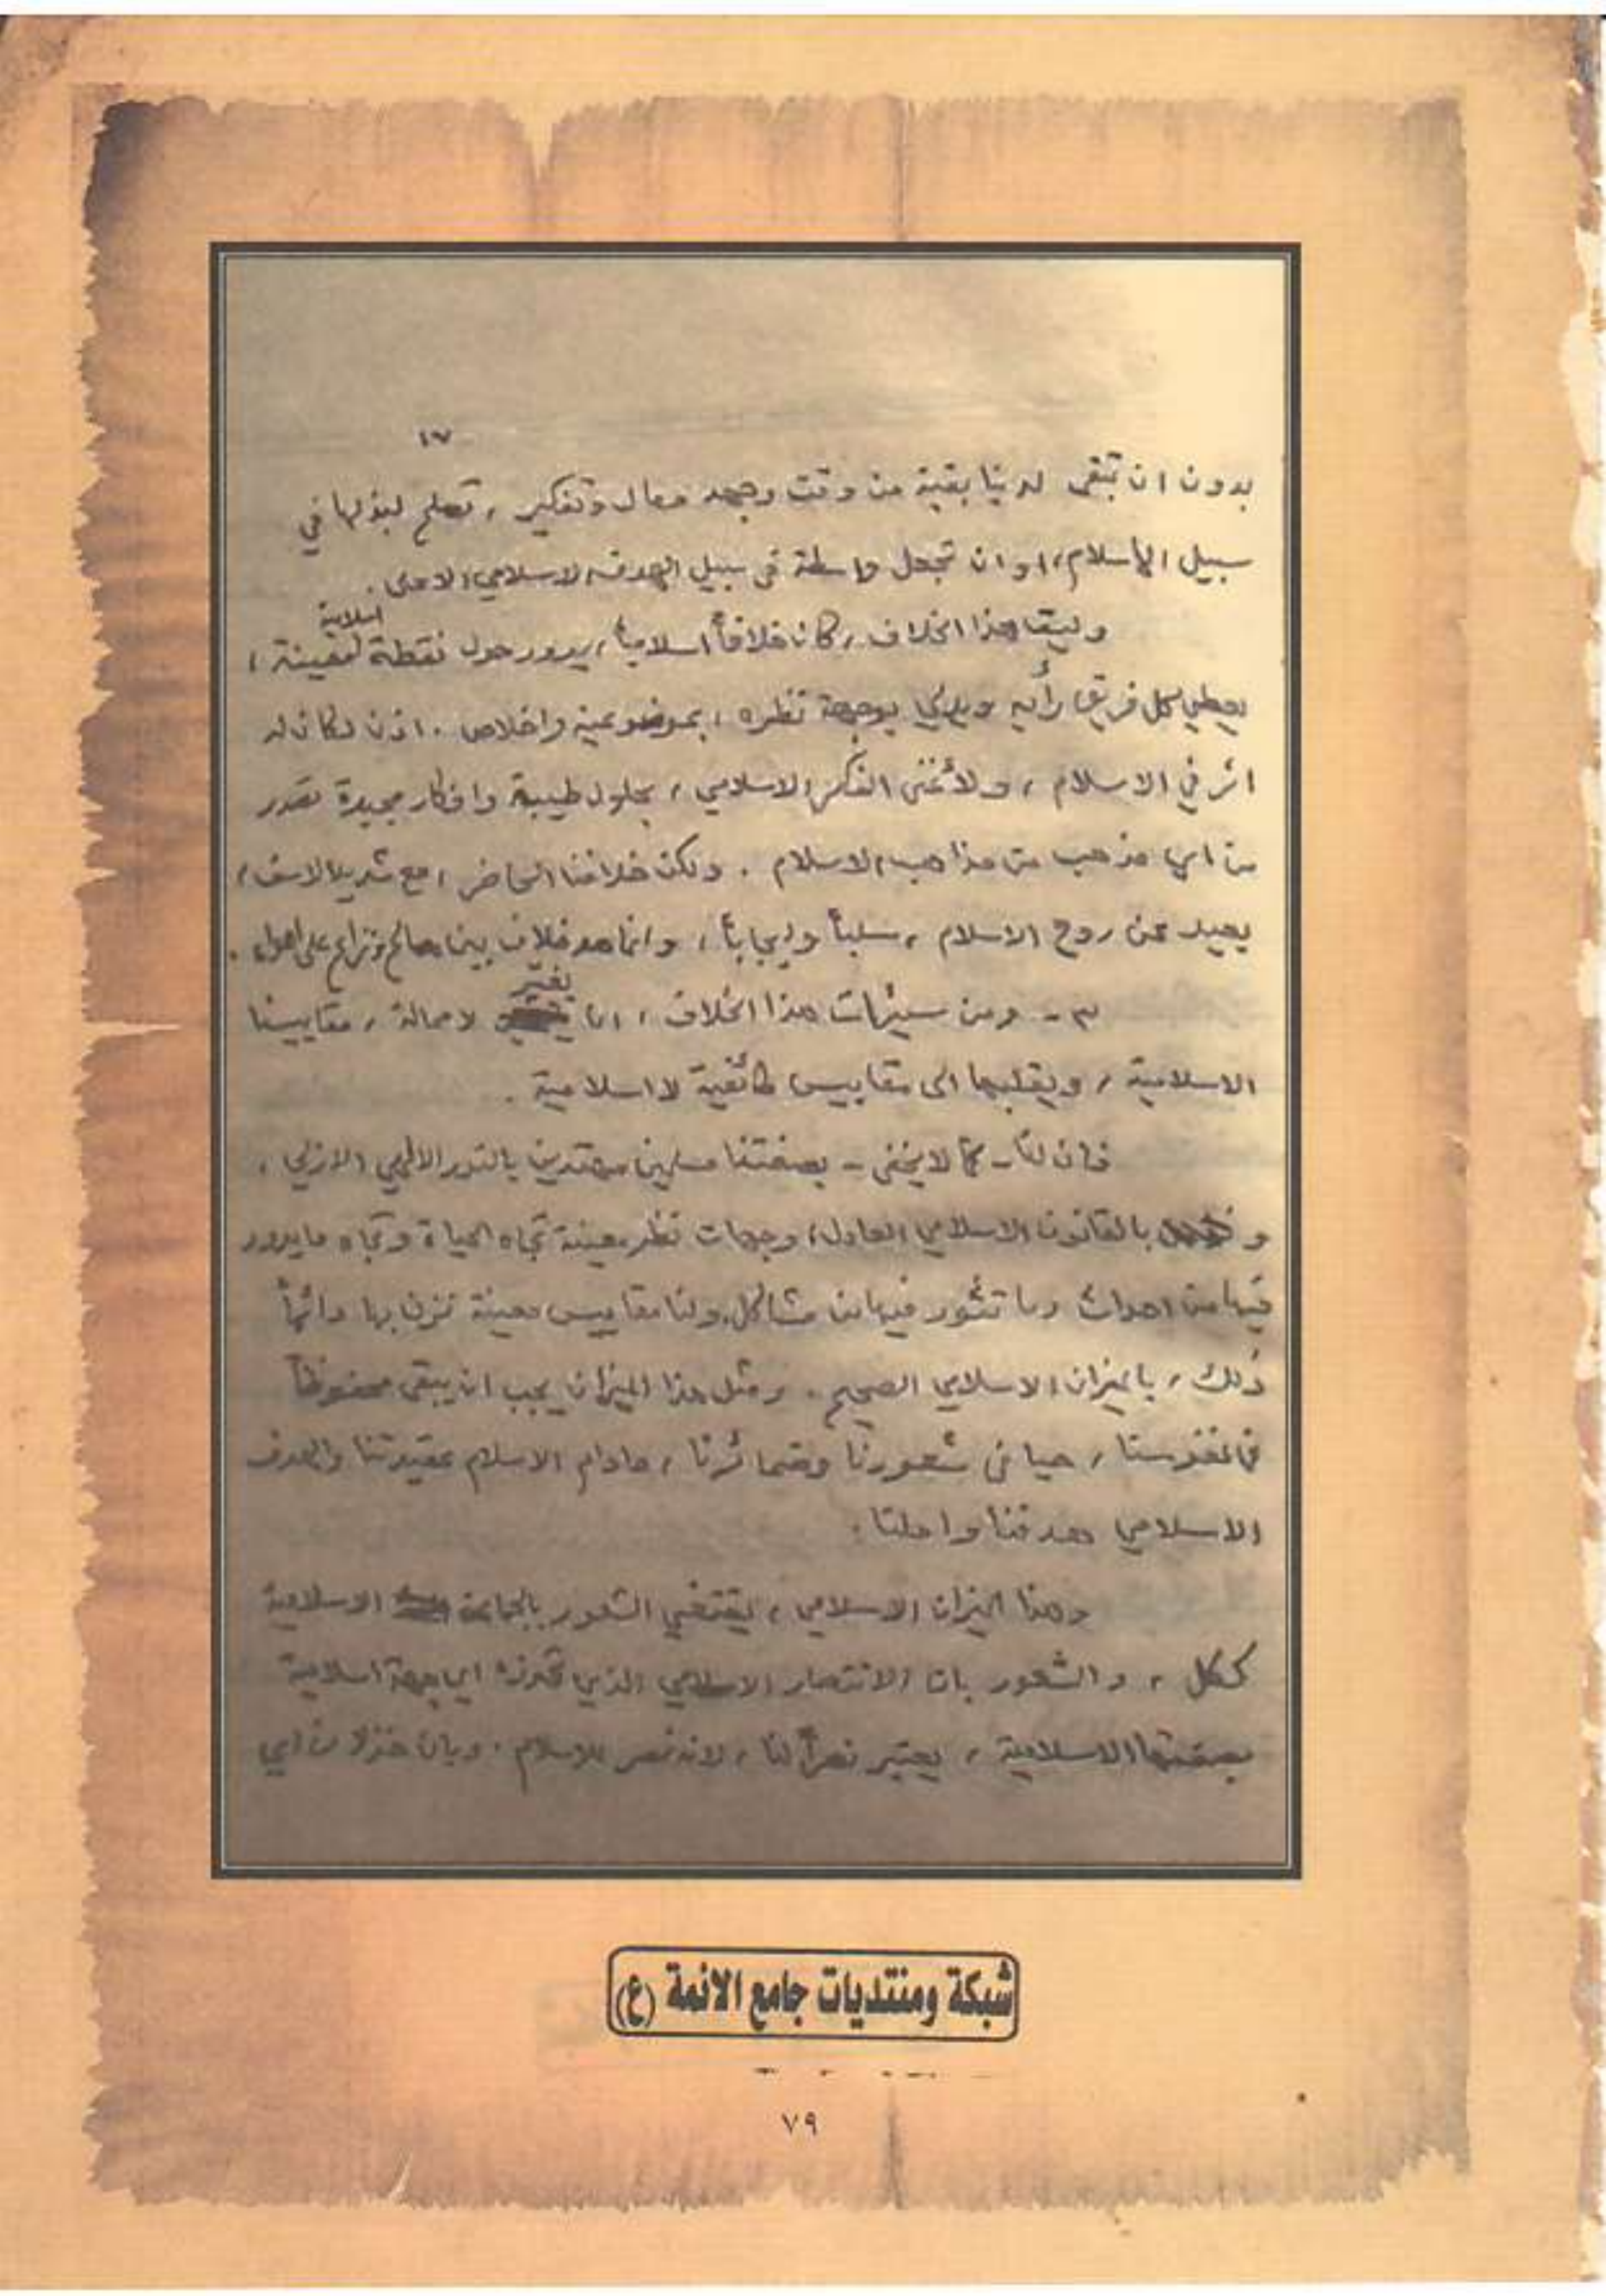 ١٧
بدون ان تبقى لدينا بقية من وقت وجهد ومال وتفكير ، تصلح لبذلها في
سبيل الاسلام ، او ان تجعل واسطة في سبيل الهدف الاسلامي الاعلى .
وليت هذا الخلاف ، كان خلافاً اسلامياً ، يدور حول نقطة اسلامية معينة ،
يعطي كل فريق رأيه ويدلي بوجهة نظره ، بموضوعية واخلاص . اذن لكان له
اثر في الاسلام ، ولأغنى الفكر الاسلامي ، بحلول طيبة وافكار مجيدة تصدر
من اي مذهب من مذاهب الاسلام . ولكن خلافنا الحاضر ، مع شديد الاسف ،
بعيد عن روح الاسلام ، سلباً وايجاباً ، وانما هو خلاف بين مصالح ونزاع على اهواء .
٣ - ومن سيئات هذا الخلاف ، انه يغير لا محالة ، مقاييسنا
الاسلامية ، ويقلبها الى مقاييس طائفية لا اسلامية .
فان لنا - كما لا يخفى - بصفتنا مسلمين مهتدين بالنور الالهي الازلي ،
و بالقانون الاسلامي العادل ، وجهات نظر معينة تجاه الحياة وتجاه ما يدور
فيها من احداث وما تثور فيها من مشاكل . ولنا مقاييس معينة نزن بها دائماً
ذلك ، بالميزان الاسلامي الصحيح . ومثل هذا الميزان يجب ان يبقى محفوظاً
في نفوسنا ، حيا في شعورنا وضمائرنا ، مادام الاسلام عقيدتنا والهدف
الاسلامي هدفنا واملنا .
وهذا الميزان الاسلامي ، يقتضي الشعور بالجماعة الاسلامية
ككل ، والشعور بان الانتصار الاسلامي الذي تحرزه اي جهة اسلامية
بصفتها الاسلامية ، يعتبر نصراً لنا ، لانه نصر للاسلام . وبان خذلان اي
شبكة ومنتديات جامع الائمة (ع)
٧٩